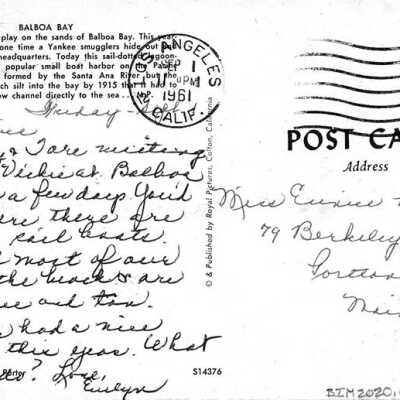 BALBOA BAY
play on the sands of Balboa Bay. This year
one time a Yankee smugglers hide out
headquarters. Today this sail-dotted lagoon
popular small boat harbor on the
formed by the Santa Ana River but the
ch silt into the bay by 1915 that it had to
w channel directly to the sea
LOS ANGELES
CALIF.
SEP 1
PM
1961
POST CA
Address
Friday
& I are visiting
Vickie at Balboa
a few days You'd
there are
sail boats.
most of our
the beach & are
and tan.
had a nice
this year. What
? Love,
Evelyn
© & Published by Royal Pictures, Colton, California
Miss Eunice
79 Berkeley
Portland
Main
Porter
S14376
BIM2020.